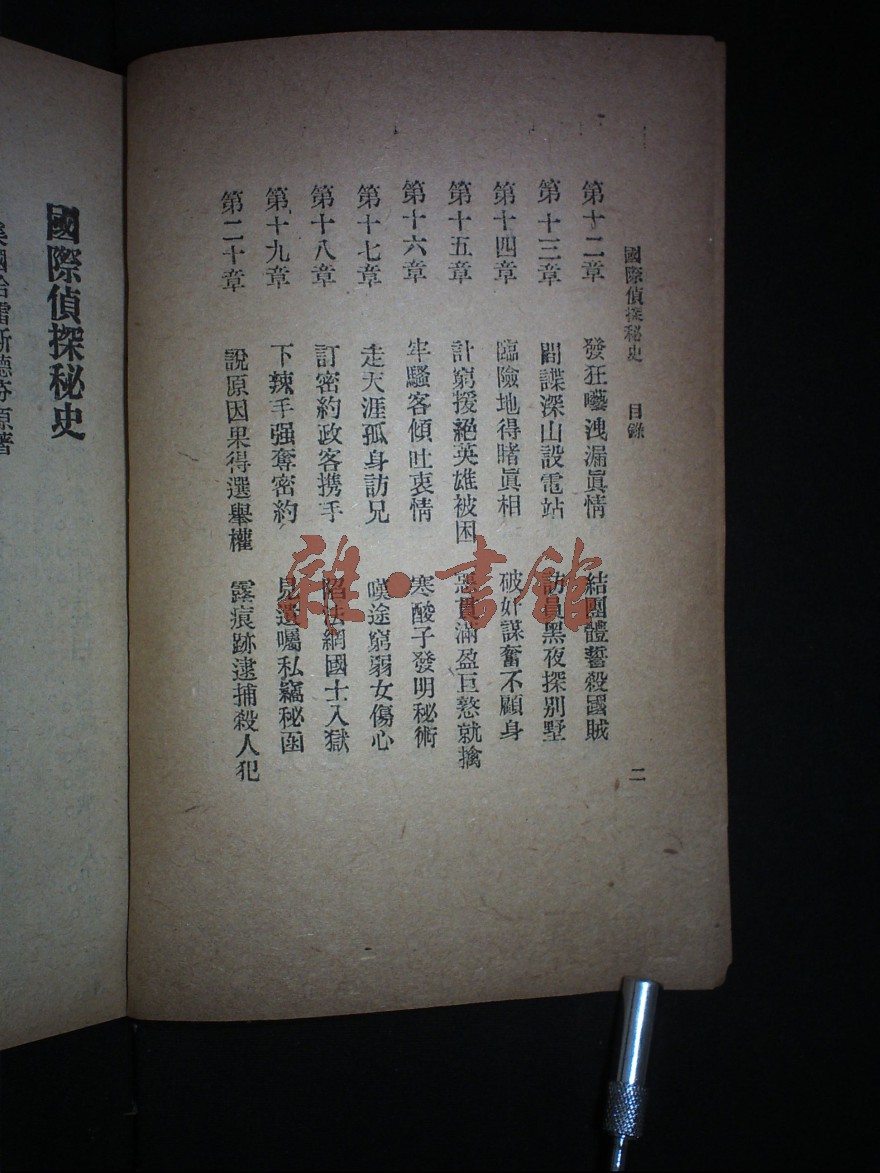 國際偵探秘史 目錄 二
第十二章 發狂囈洩漏眞情 結團體誓殺國賊
第十三章 間諜深山設電站 訪員黑夜探別墅
第十四章 臨險地得睹眞相 破奸謀奮不顧身
第十五章 計窮援絕英雄被困 惡貫滿盈巨憝就擒
第十六章 牢騷客傾吐衷情 寒酸子發明秘術
第十七章 走天涯孤身訪兄 嘆途窮弱女傷心
第十八章 訂密約政客携手 陷法網國士入獄
第十九章 下辣手强奪密約 見遺囑私竊秘函
第二十章 說原因果得選舉權 露痕跡逮捕殺人犯
國際偵探秘史
美國哈雷斯德芬原著
雜·書館